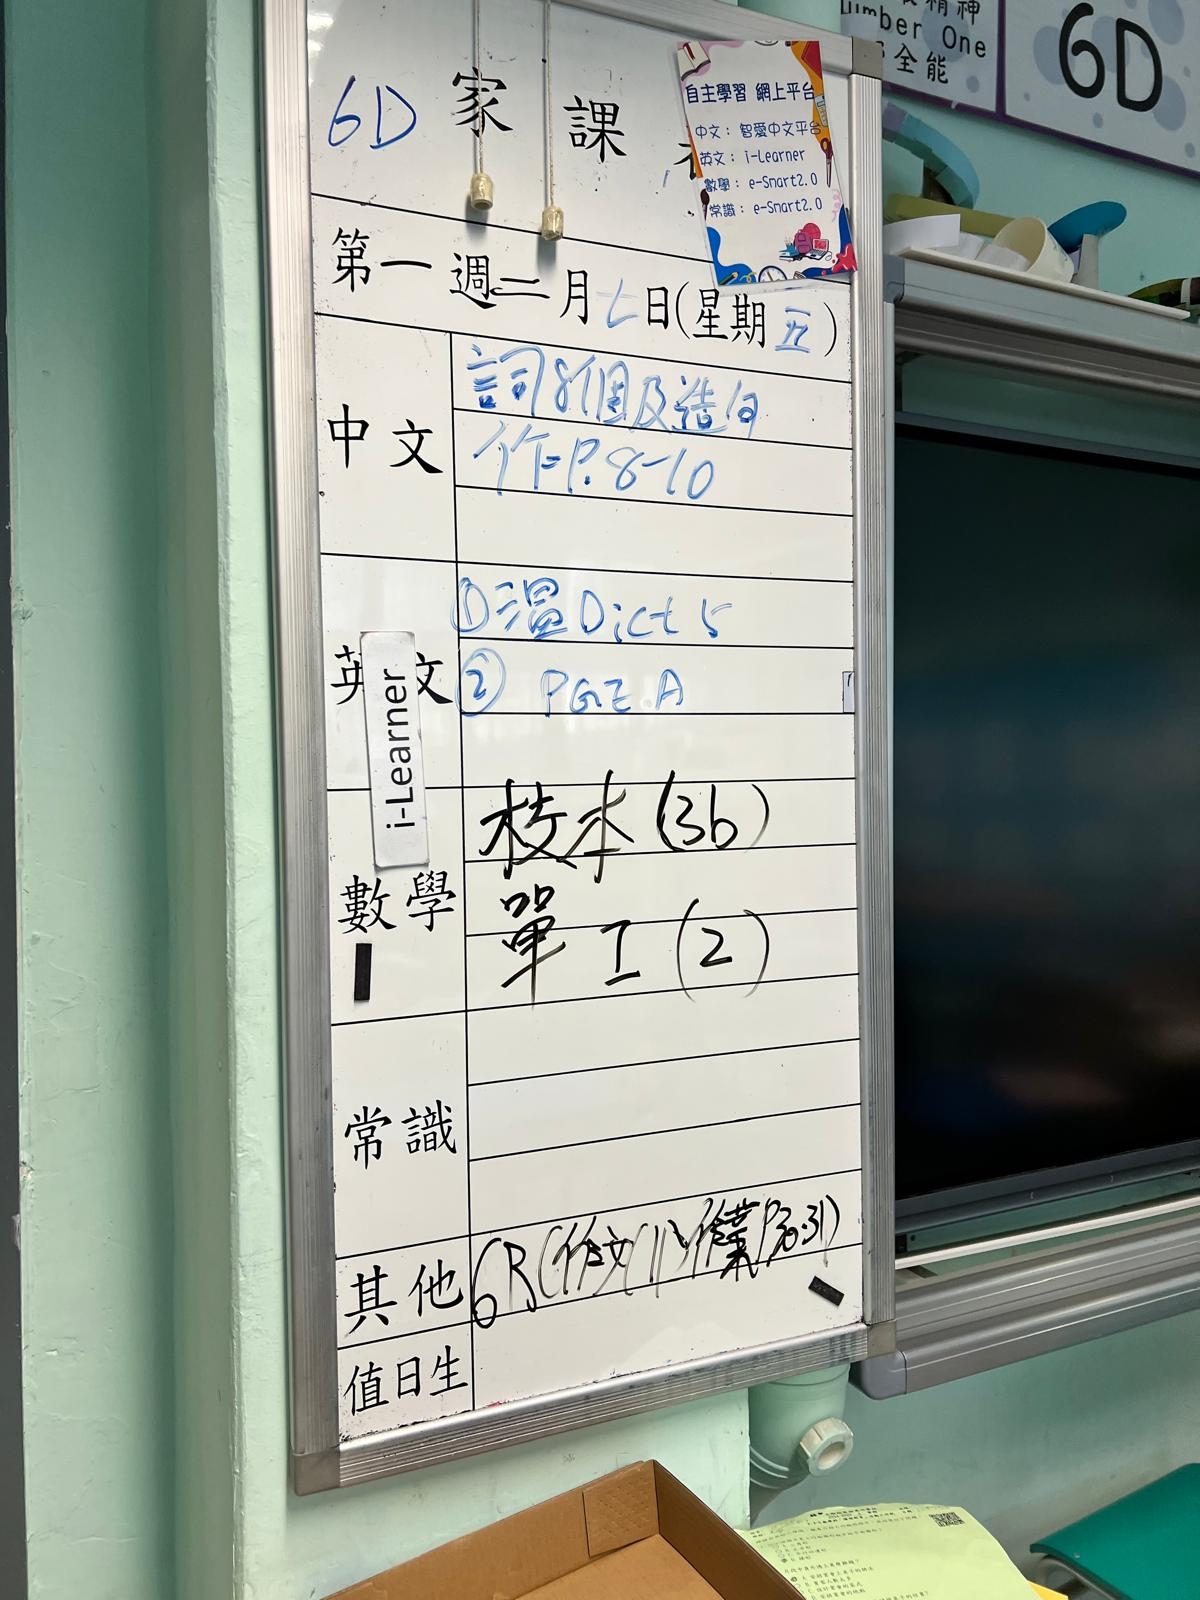 精神
umber One
全能
6D
6D 家課
自主學習 網上平台
中文：智愛中文平台
英文：i-Learner
數學：e-Smart2.0
常識：e-Smart2.0
第一週二月七日(星期五)
中文
詞8個及造句
作P.8-10
英文
①溫Dict 5
② PGE A
i-Learner
數學
校本(3b)
單工(2)
常識
其他
6R(作文(11)、作業P30-31)
值日生